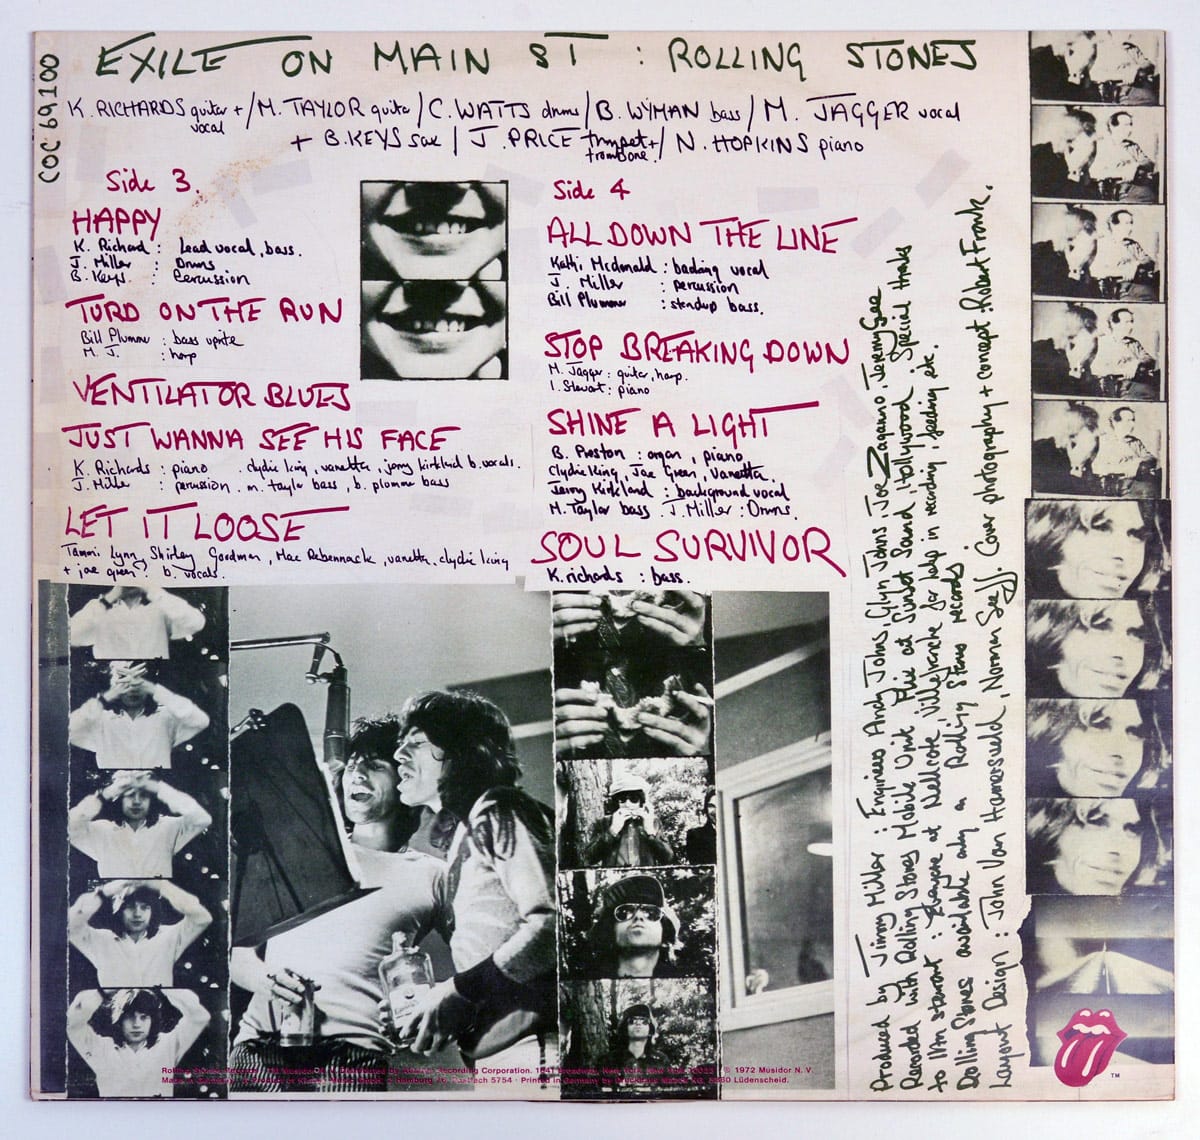 COC 69100
EXILE ON MAIN ST : ROLLING STONES
K. RICHARDS guitar + vocal / M. TAYLOR guitar / C. WATTS drums / B. WYMAN bass / M. JAGGER vocal
+ B. KEYS sax / J. PRICE trumpet + trombone / N. HOPKINS piano
Side 3.
HAPPY
K. Richard : Lead vocal, bass.
J. Miller : Drums
B. Keys : Percussion
TURD ON THE RUN
Bill Plummer : bass uprite
M. J. : harp
VENTILATOR BLUES
JUST WANNA SEE HIS FACE
K. Richards : piano . clydie king, vanetta, jerry kirkland b. vocals.
J. Miller : percussion . m. taylor bass, b. plummer bass
LET IT LOOSE
Tammi Lynn, Shirley Goodman, Mac Rebennack, vanetta, clydie king
+ joe green : b. vocals.
Side 4
ALL DOWN THE LINE
Kathi Mcdonald : backing vocal
J. Miller : percussion
Bill Plummer : standup bass.
STOP BREAKING DOWN
M. Jagger : guitar, harp.
I. Stewart : piano
SHINE A LIGHT
B. Preston : organ, piano
Clydie King, Joe Green, Vanetta,
Jerry Kirkland : background vocal
M. Taylor bass . J. Miller : Drums.
SOUL SURVIVOR
K. richards : bass.
Produced by Jimmy Miller : Engineers Andy Johns, Glyn Johns, Joe Zagarino, Jeremy Gee
Recorded with Rolling Stones Mobile Unit + at Sunset Sound, Hollywood. Special thanks
to Ian stewart : Everyone at Nellcote Villefranche for help in recording, feeding etc.
Rolling Stones available only on Rolling Stones records.
Layout Design : John Van Hamersveld, Norman Seeff. Cover photography + concept : Robert Frank.
Recording Corporation. 1841 Broadway, © 1972 Musidor N. V.
5754 · Printed in Germany by Lüdenscheid.
TM